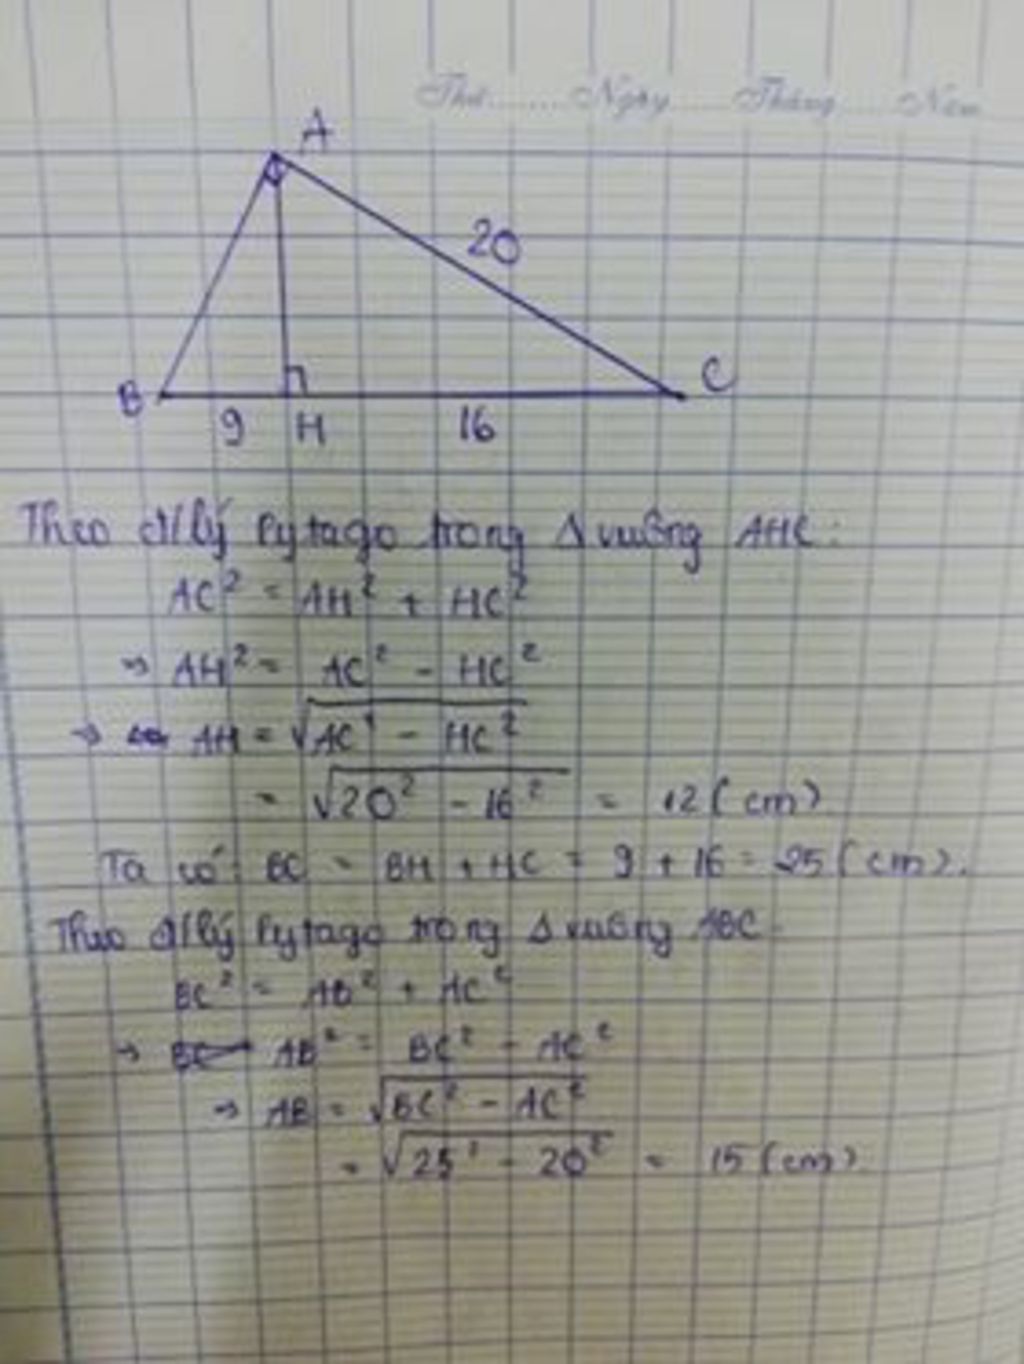 Thứ........Ngày.......Tháng.......Năm
A
20
B
C
9 H 16
Theo đ/lý Pytago trong Δ vuông AHC:
AC² = AH² + HC²
⇒ AH² = AC² - HC²
⇒ AH = √AC² - HC²
= √20² - 16² = 12 (cm)
Ta có: BC = BH + HC = 9 + 16 = 25 (cm).
Theo đ/lý Pytago trong Δ vuông ABC:
BC² = AB² + AC²
⇒ AB² = BC² - AC²
⇒ AB = √BC² - AC²
= √25² - 20² = 15 (cm)